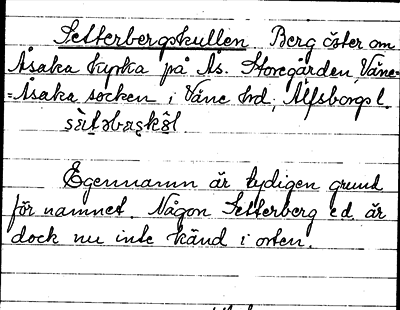 Setterbergskullen Berg öster om
Åsaka kyrka på Ås. Storegården, Väne-
=Åsaka socken, i Väne hrd, Älfsborgs l.
Egennamn är tydigen grund
för namnet. Någon Setterberg e d. är
dock nu inte känd i orten.